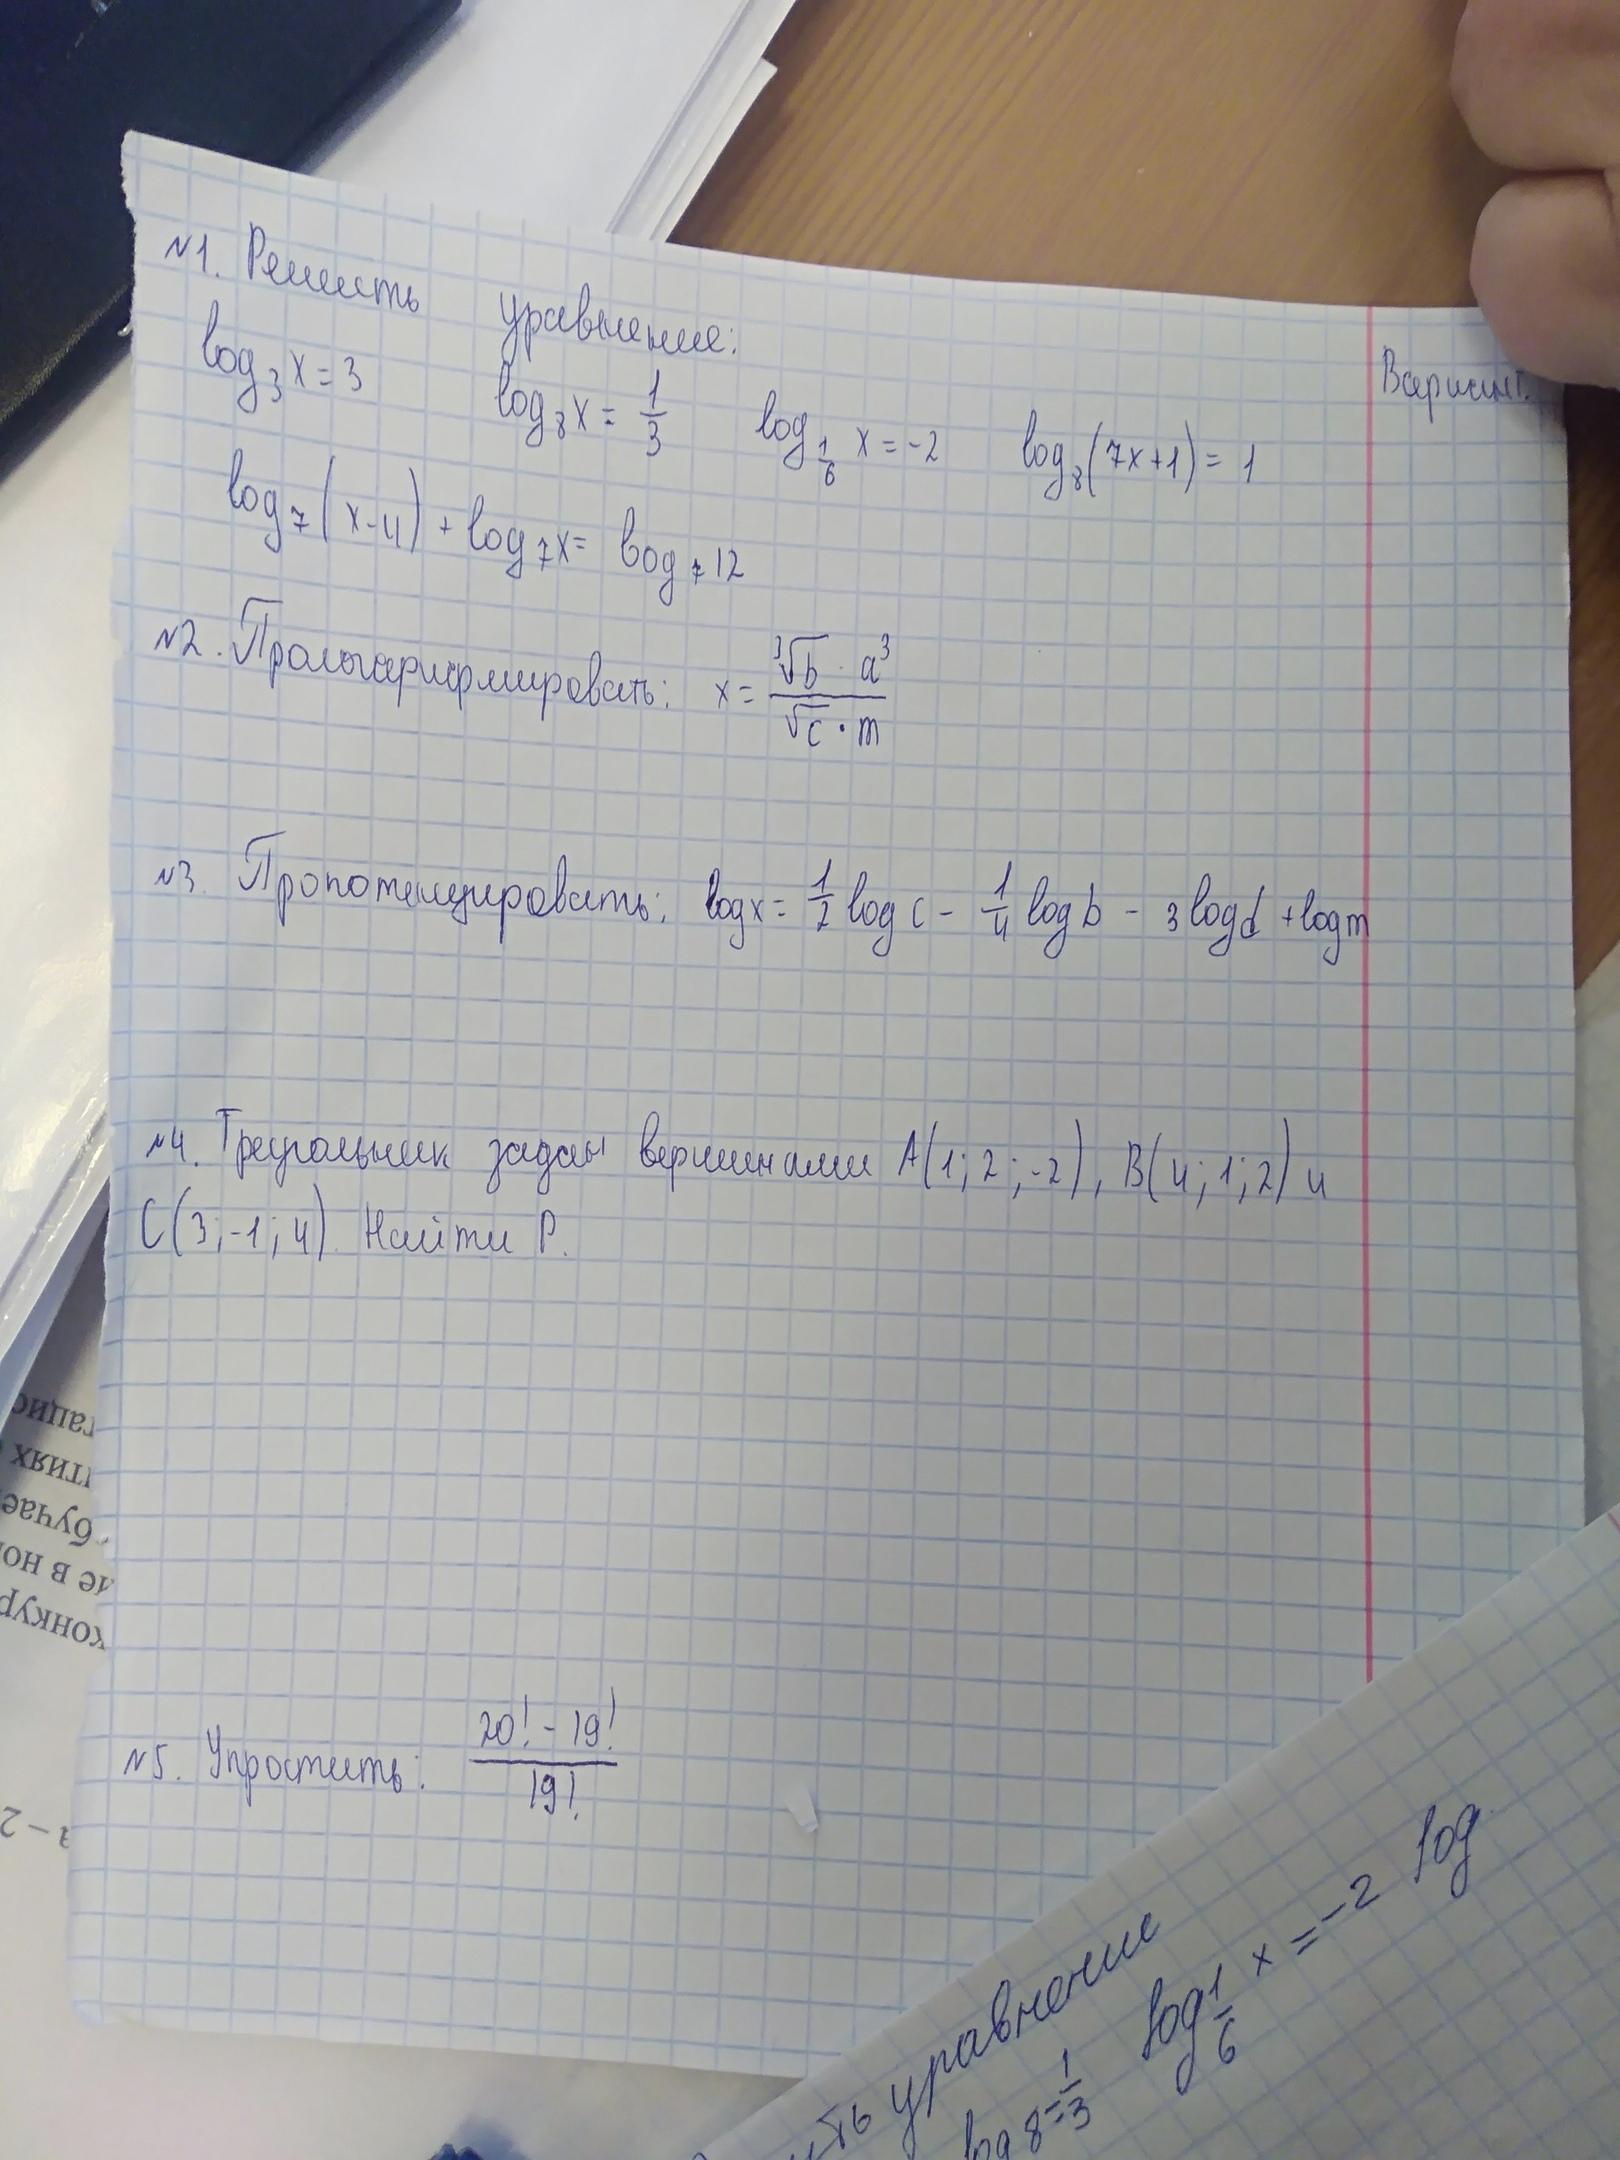 №1. Решить уравнение:
Вариант.
log₃x = 3 log₈x = 1/3 log_{1/6} x = -2 log₈(7x+1) = 1
log₇(x-4) + log₇x = log₇12
№2. Пролагарифмировать: x = (∛b · a³)/(√c · m)
№3. Пропотенцировать: log x = 1/2 log c - 1/4 log b - 3 log d + log m
№4. Треугольник задан вершинами A(1; 2; -2), B(4; 1; 2) и
C(3; -1; 4). Найти P.
№5. Упростить: (20! - 19!)/19!
уравнение
log 8 = 1/3 log 1/6 x = -2 log